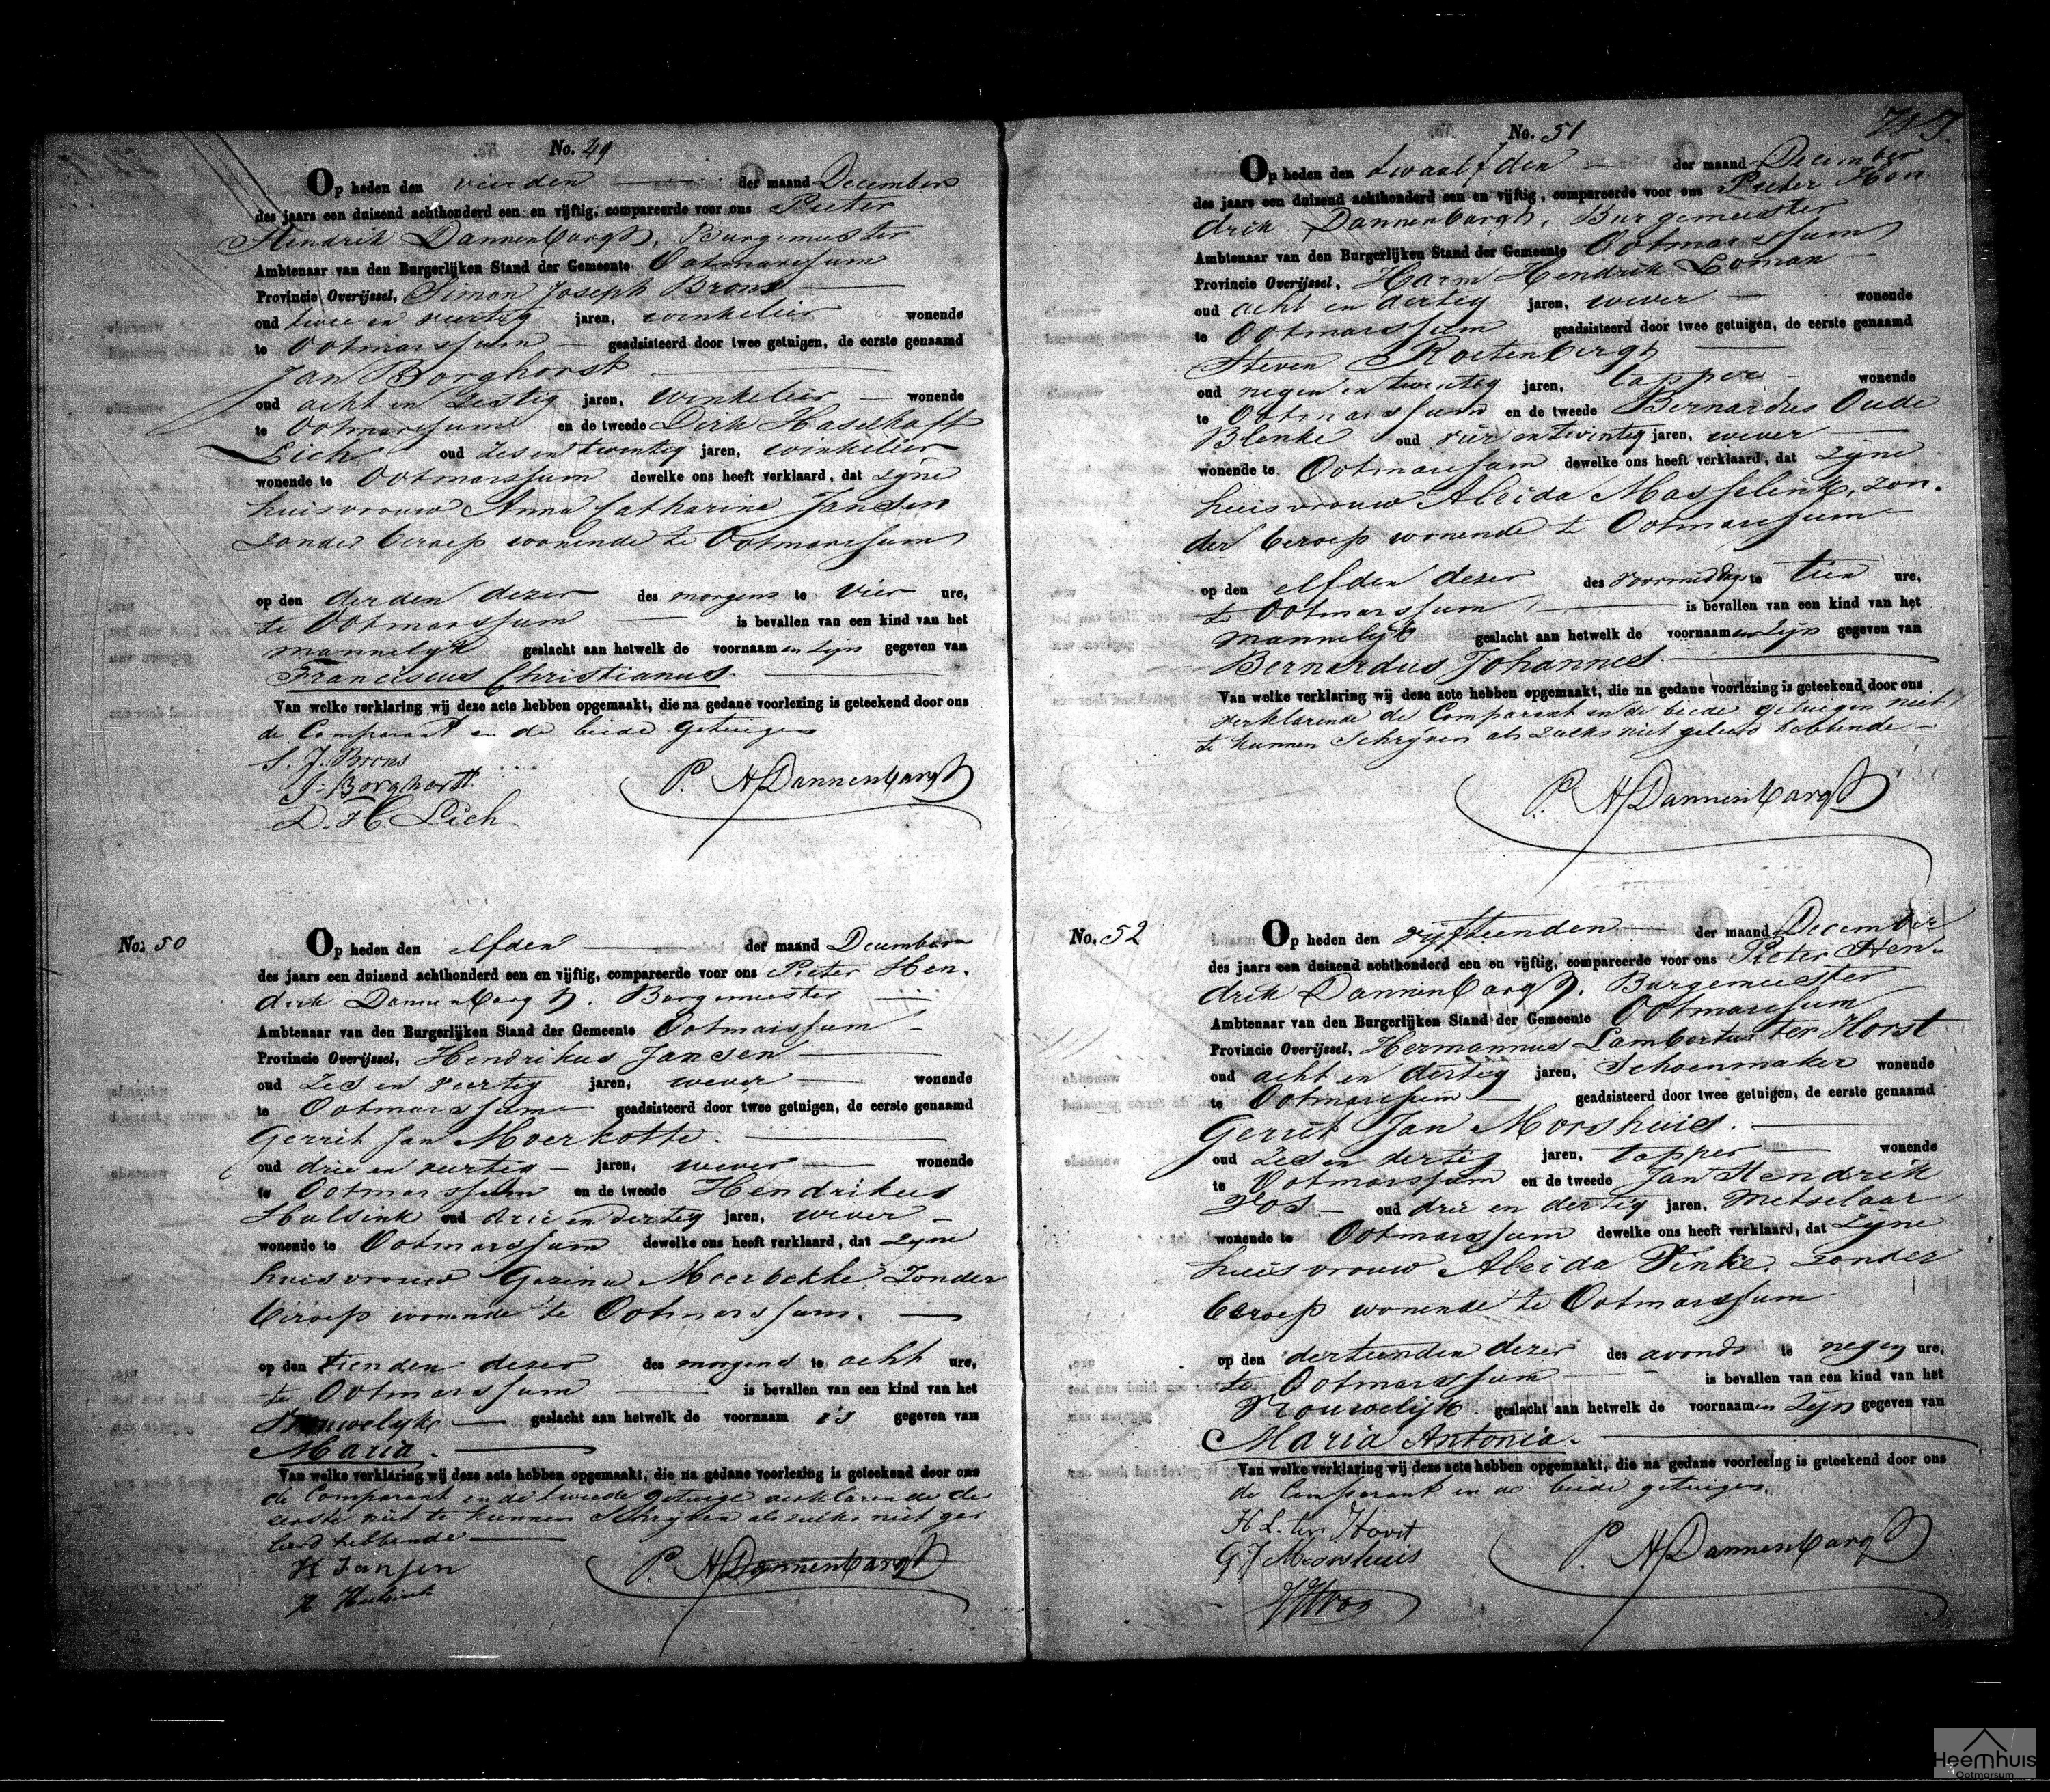 No. 49
Op heden den vierden der maand December
des jaars een duizend achthonderd een en vijftig, compareerde voor ons Pieter
Hendrik Dannenbargh, Burgemeester
Ambtenaar van den Burgerlijken Stand der Gemeente Ootmarssum
Provincie Overijssel, Simon Joseph Brons
oud twee en veertig jaren, winkelier wonende
te Ootmarssum geadsisteerd door twee getuigen, de eerste genaamd
Jan Borghorst
oud acht en zestig jaren, winkelier wonende
te Ootmarssum en de tweede Dirk Haselhoff
Lich oud zes en twintig jaren, winkelier
wonende te Ootmarssum dewelke ons heeft verklaard, dat zijne
huisvrouw Anna Catharina Jansen
zonder beroep wonende te Ootmarssum
op den derden dezer des morgens te vier ure,
te Ootmarssum is bevallen van een kind van het
mannelijk geslacht aan hetwelk de voornaamen zijn gegeven van
Franciscus Christianus.
Van welke verklaring wij deze acte hebben opgemaakt, die na gedane voorlezing is geteekend door ons
de Comparant en de beide getuigen
S. J. Brons
J. Borghorst
P. H Dannenbargh
D. H. Lich
No. 50
Op heden den elfden der maand December
des jaars een duizend achthonderd een en vijftig, compareerde voor ons Pieter Hen-
drik Dannenbargh. Burgemeester
Ambtenaar van den Burgerlijken Stand der Gemeente Ootmarssum
Provincie Overijssel, Hendrikus Jansen
oud zes en veertig jaren, wever wonende
te Ootmarssum geadsisteerd door twee getuigen, de eerste genaamd
Gerrit Jan Moerkotte.
oud drie en veertig jaren, wever wonende
te Ootmarssum en de tweede Hendrikus
Hulsink oud drie en dertig jaren, wever
wonende te Ootmarssum dewelke ons heeft verklaard, dat zijne
huisvrouw Gezina zonder
beroep wonende te Ootmarssum.
op den tienden dezer des morgens te acht ure,
te Ootmarssum is bevallen van een kind van het
Vrouwelijk geslacht aan hetwelk de voornaam is gegeven van
Maria.
Van welke verklaring wij deze acte hebben opgemaakt, die na gedane voorlezing is geteekend door ons
de Comparant en de tweede getuige verklarende de
eerste niet te kunnen Schrijven als zulks niet ge
leerd hebbende
H Jansen
P. H Dannenbargh
H Hulsink
No. 51
Op heden den twaalfden der maand December
des jaars een duizend achthonderd een en vijftig, compareerde voor ons Pieter Hen-
drik Dannenbargh, Burgemeester
Ambtenaar van den Burgerlijken Stand der Gemeente Ootmarssum
Provincie Overijssel, Harm Hendrik Loman
oud acht en dertig jaren, wever wonende
te Ootmarssum geadsisteerd door twee getuigen, de eerste genaamd
Steven Roetenbergh
oud negen en twintig jaren, tapper wonende
te Ootmarssum en de tweede Bernardus Oude
Blenke oud vier en twintig jaren, wever
wonende te Ootmarssum dewelke ons heeft verklaard, dat zijne
huisvrouw Aleida Masselink, zon-
der beroep wonende te Ootmarssum
op den elfden dezer des voormiddags te tien ure,
te Ootmarssum is bevallen van een kind van het
mannelijk geslacht aan hetwelk de voornaamen zijn gegeven van
Bernardus Johannes.
Van welke verklaring wij deze acte hebben opgemaakt, die na gedane voorlezing is geteekend door ons
verklarende de Comparant en de beide getuigen niet
te kunnen Schrijven als zulks niet geleerd hebbende
P. H Dannenbargh
No. 52
Op heden den vijftienden der maand December
des jaars een duizend achthonderd een en vijftig, compareerde voor ons Pieter Hen-
drik Dannenbargh. Burgemeester
Ambtenaar van den Burgerlijken Stand der Gemeente Ootmarssum
Provincie Overijssel, Hermannus Lambertus ter Horst
oud acht en dertig jaren, Schoenmaker wonende
te Ootmarssum geadsisteerd door twee getuigen, de eerste genaamd
Gerrit Jan Morshuis.
oud zes en dertig jaren, tapper wonende
te Ootmarssum en de tweede Jan Hendrik
Vos oud drie en dertig jaren, Metselaar
wonende te Ootmarssum dewelke ons heeft verklaard, dat zijne
huisvrouw Aleida Vinke, zonder
beroep wonende te Ootmarssum
op den dertienden dezer des avonds te negen ure,
te Ootmarssum is bevallen van een kind van het
Vrouwelijk geslacht aan hetwelk de voornaamen zijn gegeven van
Maria Antonia.
Van welke verklaring wij deze acte hebben opgemaakt, die na gedane voorlezing is geteekend door ons
de Comparant en de beide getuigen.
H L. ter Horst
G J Morshuis
P. H Dannenbargh
Heemhuis
Ootmarsum